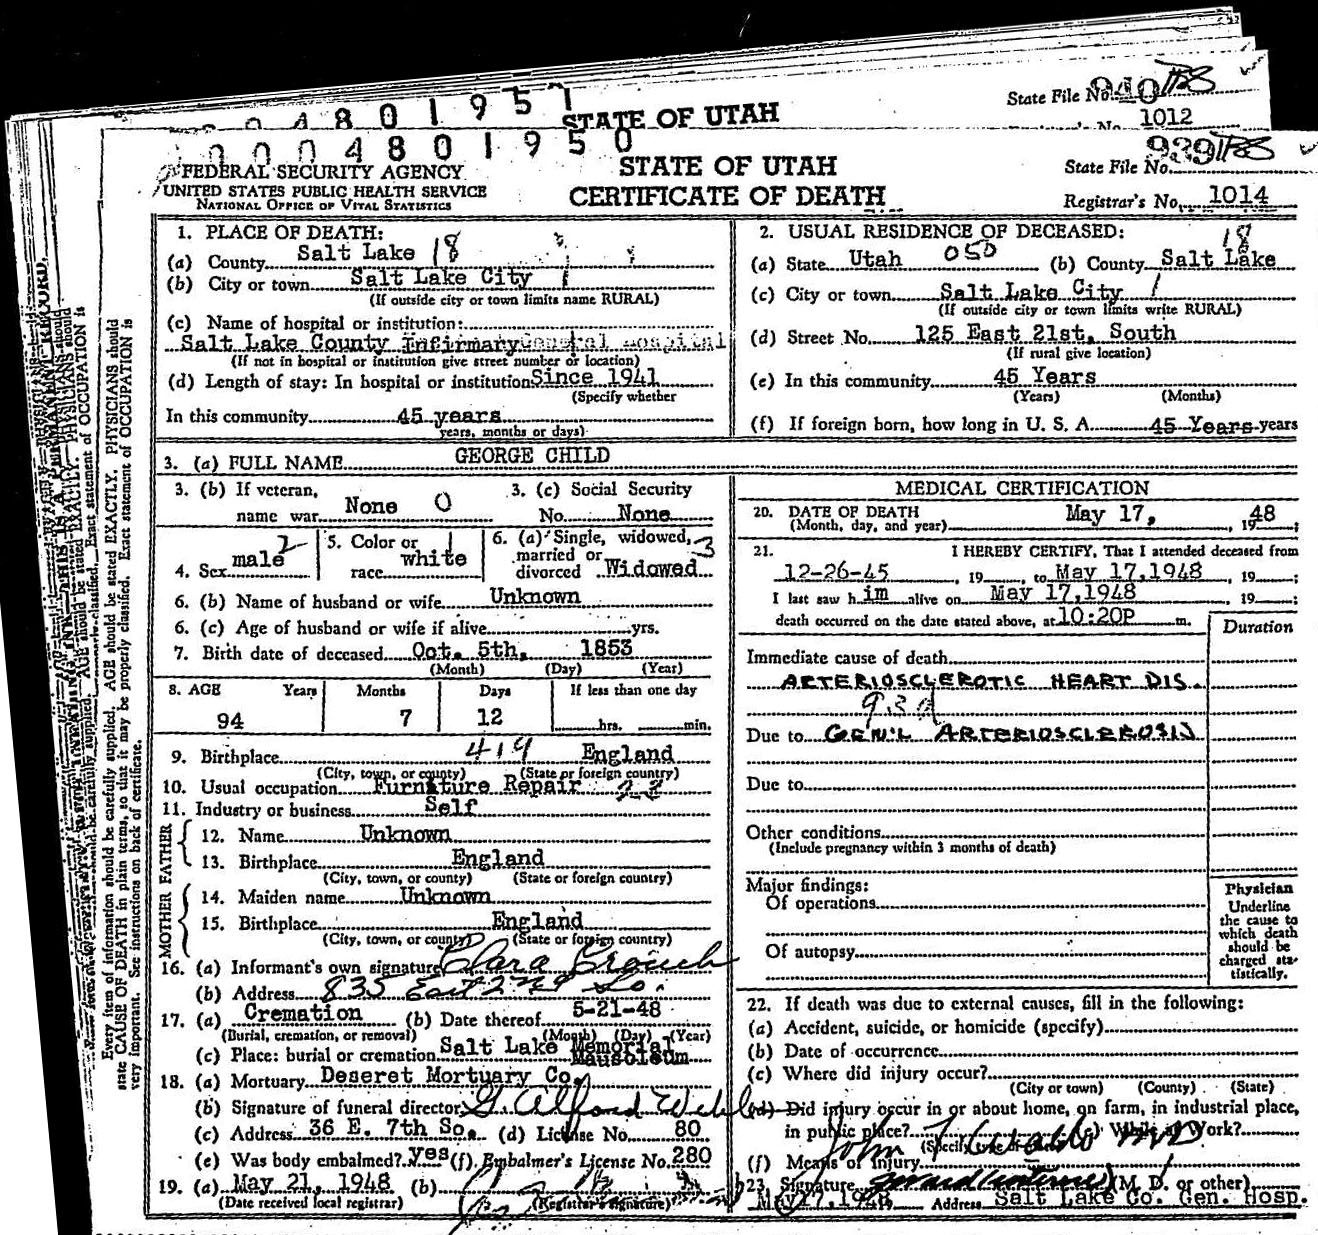 0 0 4 8 0 1 9 5 1
STATE OF UTAH
State File No. 940
1012
0 0 0 4 8 0 1 9 5 0
FEDERAL SECURITY AGENCY
UNITED STATES PUBLIC HEALTH SERVICE
NATIONAL OFFICE OF VITAL STATISTICS
STATE OF UTAH
CERTIFICATE OF DEATH
State File No. 939
Registrar's No. 1014
1. PLACE OF DEATH:
(a) County Salt Lake 18
(b) City or town Salt Lake City 1
(If outside city or town limits name RURAL)
(c) Name of hospital or institution:
Salt Lake County Infirmary General Hospital
(If not in hospital or institution give street number or location)
(d) Length of stay: In hospital or institution Since 1941
(Specify whether
In this community 45 years
years, months or days)
2. USUAL RESIDENCE OF DECEASED: 18
(a) State Utah 050 (b) County Salt Lake
(c) City or town Salt Lake City 1
(If outside city or town limits write RURAL)
(d) Street No. 125 East 21st. South
(If rural give location)
(e) In this community 45 Years
(Years) (Months)
(f) If foreign born, how long in U. S. A. 45 Years years
3. (a) FULL NAME GEORGE CHILD
3. (b) If veteran,
name war None 0
3. (c) Social Security
No. None
4. Sex male 2
5. Color or
race white 1
6. (a) Single, widowed,
married or
divorced Widowed 3
6. (b) Name of husband or wife Unknown
6. (c) Age of husband or wife if alive yrs.
7. Birth date of deceased Oct. 5th, 1853
(Month) (Day) (Year)
8. AGE Years Months Days If less than one day
94 7 12 hrs. min.
9. Birthplace 419 England
(City, town, or county) (State or foreign country)
10. Usual occupation Furnature Repair
11. Industry or business Self
FATHER
12. Name Unknown
13. Birthplace England
(City, town, or county) (State or foreign country)
MOTHER
14. Maiden name Unknown
15. Birthplace England
(City, town, or county) (State or foreign country)
16. (a) Informant's own signature Clara Crouch
(b) Address 835 East 2nd So.
17. (a) Cremation (b) Date thereof 5-21-48
(Burial, cremation, or removal) (Month) (Day) (Year)
(c) Place: burial or cremation Salt Lake Memorial
Mausoleum
18. (a) Mortuary Deseret Mortuary Co.
(b) Signature of funeral director
(c) Address 36 E. 7th So. (d) License No. 80
(e) Was body embalmed? yes (f) Embalmer's License No. 280
19. (a) May 21, 1948 (b)
(Date received local registrar) (Registrar's signature)
MEDICAL CERTIFICATION
20. DATE OF DEATH
(Month, day, and year) May 17, , 1948;
21. I HEREBY CERTIFY, That I attended deceased from
12-26-45 , 19 , to May 17,1948 , 19 ;
I last saw h im alive on May 17,1948 , 19 ;
death occurred on the date stated above, at 10:20P m.
Duration
Immediate cause of death
ARTERIOSCLEROTIC HEART DIS.
Due to GEN'L ARTERIOSCLEROSIS
Due to
Other conditions
(Include pregnancy within 3 months of death)
Major findings:
Of operations
Of autopsy
Physician
Underline
the cause to
which death
should be
charged sta-
tistically.
22. If death was due to external causes, fill in the following:
(a) Accident, suicide, or homicide (specify)
(b) Date of occurrence
(c) Where did injury occur?
(City or town) (County) (State)
(d) Did injury occur in or about home, on farm, in industrial place,
in public place? (e) While at Work?
(f) Means of Injury
23. Signature (M. D. or other)
May 17, 1948 Address Salt Lake Co. Gen. Hosp.
Every item of information should be carefully supplied. AGE should be stated EXACTLY. PHYSICIANS should
state CAUSE OF DEATH in plain terms, so that it may be properly classified. Exact statement of OCCUPATION is
very important. See instructions on back of certificate.